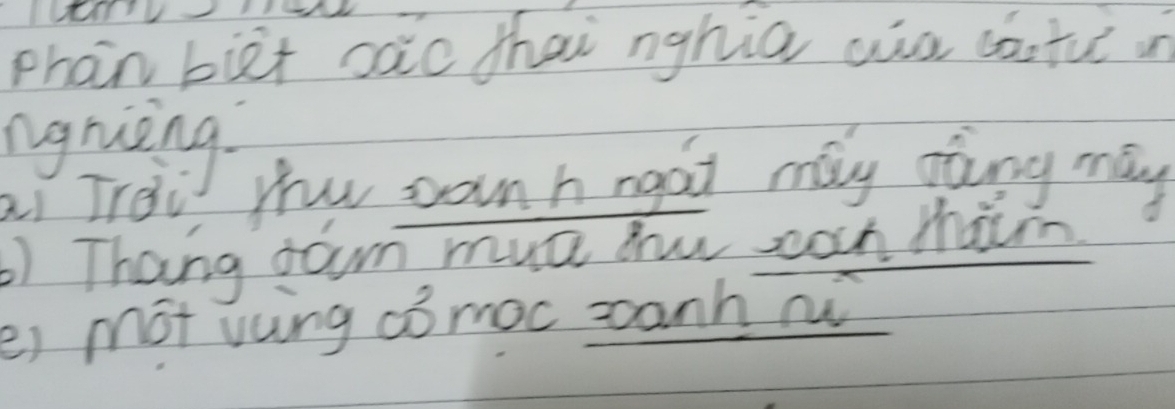 phân biệt các thái nghĩa của các từ in
nghiêng.
a) Trời thu xanh ngát mấy tầng mây
b) Tháng tám mùa thu xanh thắm
e) một vùng cỏ mọc xanh rì